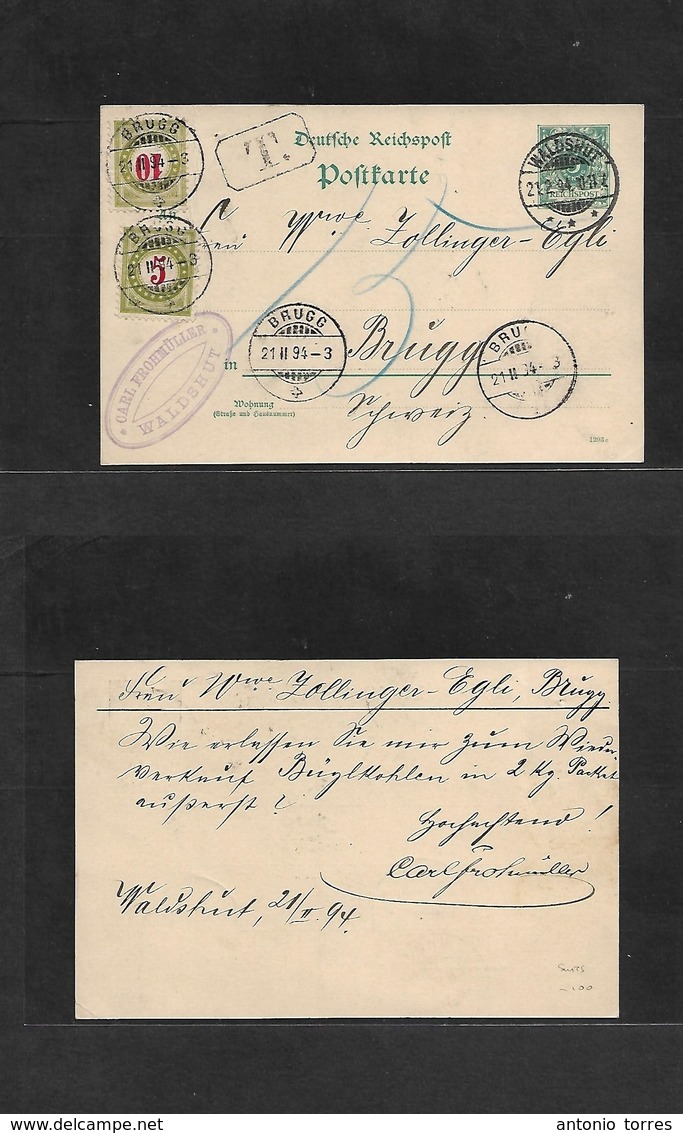 BRUGG
21 II 94-3
10
T.
Deutsche Reichspost
Postkarte
5
REICHSPOST
WALDSHUT
21.2.94.
An
Frau Wwe Zollinger-Egli
BRUGG
21 II 94-3
5
15
BRUGG
21 II 94-3
BRUGG
21 II 94-3
in Brugg
CARL FROHMÜLLER
WALDSHUT
Wohnung
(Straße und Hausnummer)
Schweiz.
1293e
Frau Wwe Zollinger-Egli, Brugg.
Wie erlassen Sie mir zum Wieder-
verkauf Büglkohlen in 2 Kg. Packet
außerst?
Hochachtend!
Carl Frohmüller
Waldshut, 21/II. 94.
100
antonio torres